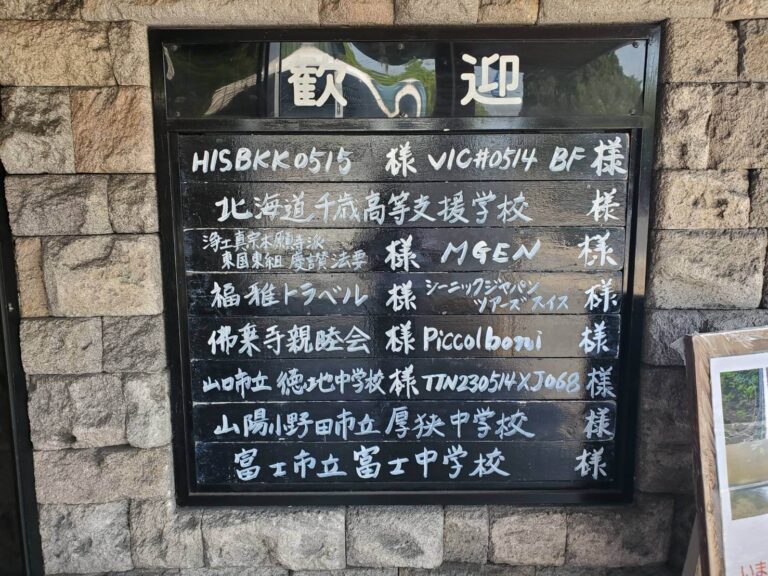 歓迎
HISBKK0515 様 VIC#0514 BF 様
北海道千歳高等支援学校 様
浄土真宗本願寺派
東国東組 慶讃法要 様 MGEN 様
福雅トラベル 様 シーニックジャパン
ツアーズスイス 様
佛乗寺親睦会 様 Piccolbomi 様
山口市立 徳地中学校 様 TTN230514XJ068 様
山陽小野田市立 厚狭中学校 様
富士市立富士中学校 様
いま